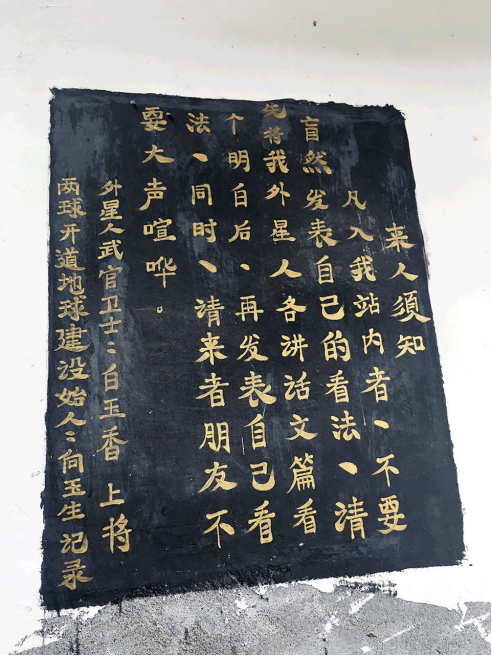 来人须知
凡入我站内者、不要
盲然发表自己的看法、请
先将我外星人各讲话文篇看
个明白后、再发表自己看
法、同时、请来者朋友不
要大声喧哗。
外星人武官卫士:白玉香 上将
两球开道地球建设始人:向玉生记录